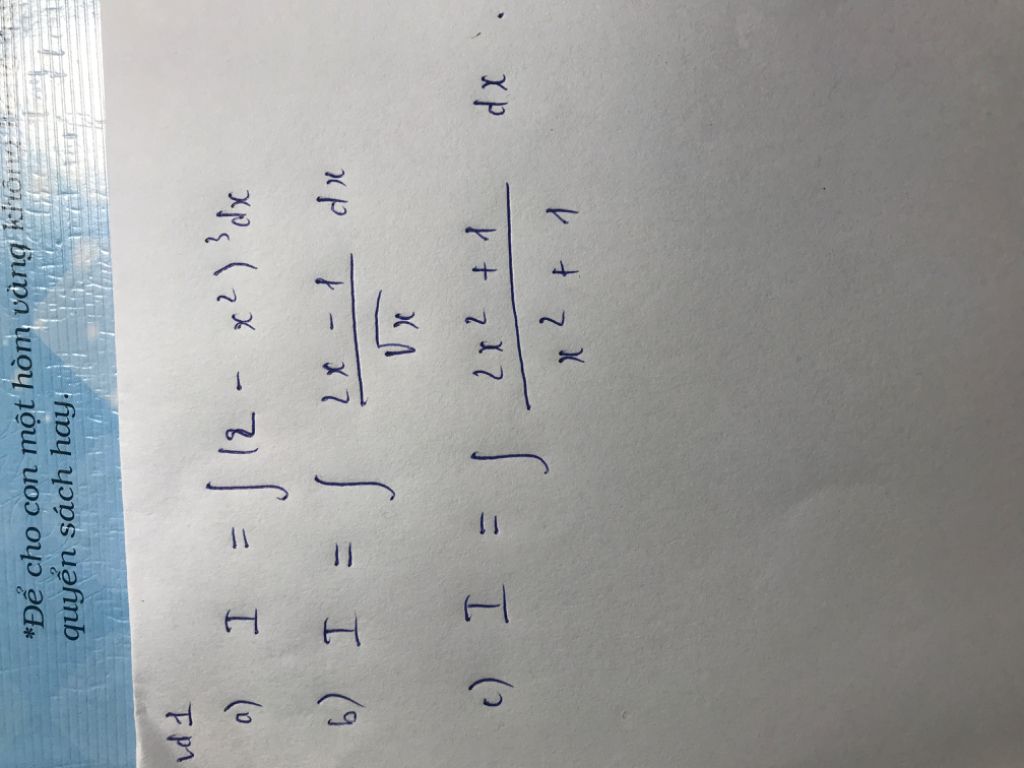 *Để cho con một hòm vàng không
quyển sách hay.
vd 1
a) I = ∫(2 - x²)³dx
b) I = ∫ (2x - 1)/√x dx
c) I = ∫ (2x² + 1)/(x² + 1) dx.